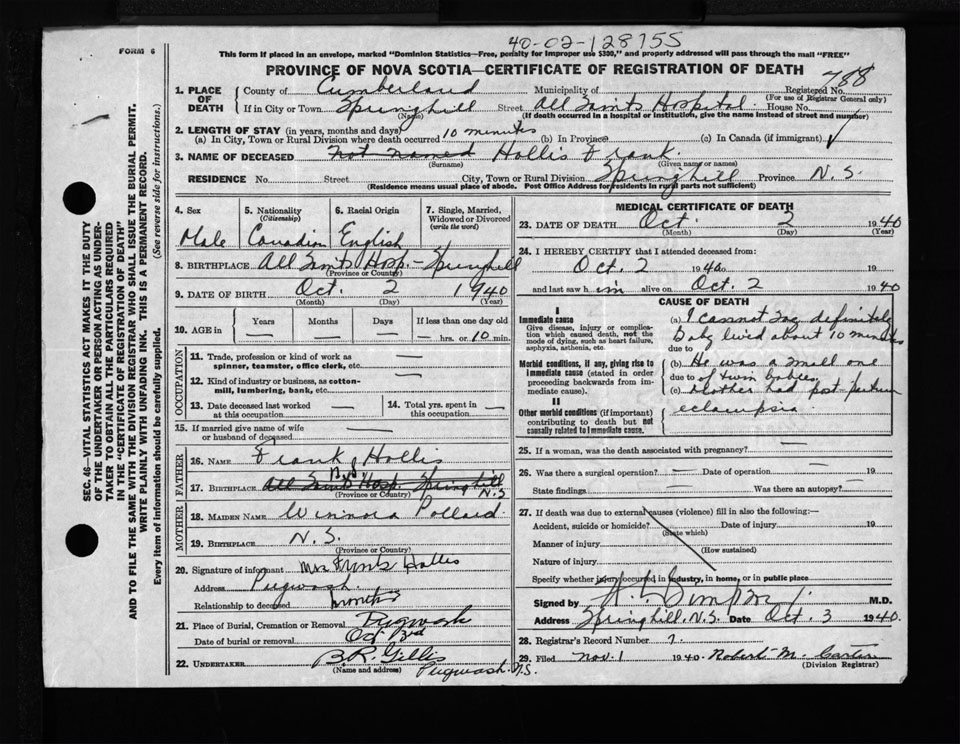 40-02-128755
FORM 6
This form if placed in an envelope, marked "Dominion Statistics—Free, penalty for improper use $300," and properly addressed will pass through the mail "FREE"
PROVINCE OF NOVA SCOTIA—CERTIFICATE OF REGISTRATION OF DEATH
788
1. PLACE OF DEATH
County of Cumberland Municipality of Registered No.
(For use of Registrar General only)
If in City or Town Springhill Street All Saints Hospital House No.
(Name) (If death occurred in a hospital or institution, give the name instead of street and number)
2. LENGTH OF STAY (in years, months and days)
(a) In City, Town or Rural Division where death occurred 10 minutes (b) In Province (c) In Canada (if immigrant)
3. NAME OF DECEASED Not named Hollis Frank.
(Surname) (Given name or names)
RESIDENCE No. Street City, Town or Rural Division Springhill Province N.S.
(Residence means usual place of abode. Post Office Address for residents in rural parts not sufficient)
4. Sex 5. Nationality 6. Racial Origin 7. Single, Married, Widowed or Divorced
(Citizenship) (write the word)
Male Canadian English
8. BIRTHPLACE All Saints Hosp. - Springhill
(Province or Country)
9. DATE OF BIRTH Oct. 2 1940
(Month) (Day) (Year)
10. AGE in Years Months Days If less than one day old
— — — — hrs. or 10 min.
OCCUPATION
11. Trade, profession or kind of work as spinner, teamster, office clerk, etc. —
12. Kind of industry or business, as cotton-mill, lumbering, bank, etc. —
13. Date deceased last worked at this occupation — 14. Total yrs. spent in this occupation —
15. If married give name of wife or husband of deceased —
FATHER
16. NAME Frank Hollis
17. BIRTHPLACE All Saints Hosp. Springhill N.S
(Province or Country)
MOTHER
18. MAIDEN NAME Winnora Pollard.
19. BIRTHPLACE N.S.
(Province or Country)
20. Signature of informant Mrs Hollis
Address Pugwash.
Relationship to deceased
21. Place of Burial, Cremation or Removal Pugwash
Date of burial or removal Oct 3rd
22. UNDERTAKER B.R. Gillis
(Name and address) Pugwash. N.S.
MEDICAL CERTIFICATE OF DEATH
23. DATE OF DEATH Oct. 2 1940
(Month) (Day) (Year)
24. I HEREBY CERTIFY that I attended deceased from:
Oct. 2 1940 19
and last saw him alive on Oct. 2 1940
CAUSE OF DEATH
I
Immediate cause
Give disease, injury or complication which caused death, not the mode of dying, such as heart failure, asphyxia, asthenia, etc.
(a) I cannot say definitely
Baby lived about 10 minutes
due to
Morbid conditions, if any, giving rise to immediate cause (stated in order proceeding backwards from immediate cause).
(b) He was a small one
due to of twin babies
(c) Mother had post partum
eclampsia
II
Other morbid conditions (if important) contributing to death but not causally related to immediate cause.
25. If a woman, was the death associated with pregnancy? —
26. Was there a surgical operation? — Date of operation — 19
State findings — Was there an autopsy? —
27. If death was due to external causes (violence) fill in also the following:—
Accident, suicide or homicide? Date of injury 19
(State which)
Manner of injury
(How sustained)
Nature of injury
Specify whether injury occurred in industry, in home, or in public place
Signed by M.D.
Address Springhill, N.S. Date Oct. 3 1940
28. Registrar's Record Number 7.
29. Filed Nov. 1 1940 Robert M. Carter
(Division Registrar)
SEC. 46—VITAL STATISTICS ACT MAKES IT THE DUTY
OF THE UNDERTAKER OR PERSON ACTING AS UNDER-
TAKER TO OBTAIN ALL THE PARTICULARS REQUIRED
IN THE "CERTIFICATE OF REGISTRATION OF DEATH"
AND TO FILE THE SAME WITH THE DIVISION REGISTRAR WHO SHALL ISSUE THE BURIAL PERMIT.
WRITE PLAINLY WITH UNFADING INK. THIS IS A PERMANENT RECORD.
Every item of information should be carefully supplied. (See reverse side for instructions.)